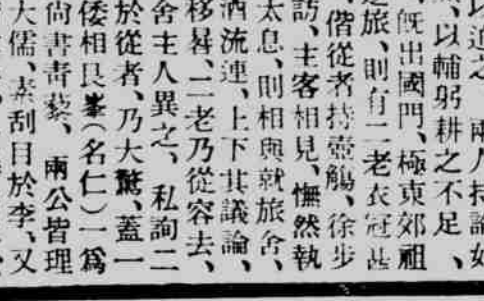 以迫之、兩人持論如
、以輔躬耕之不足、
、既出國門、極東郊祖
旅、則有二老衣冠甚
偕從者持壺觴、徐步
訪、主客相見、憮然執
太息、則相與就旅舍、
酒流連、上下其議論、
移晷、二老乃從容去、
舍主人異之、私詢二
於從者、乃大驚、蓋一
倭相艮峯（名仁）一爲
尚書靑藜、兩公皆理
大儒、素刮目於李、又